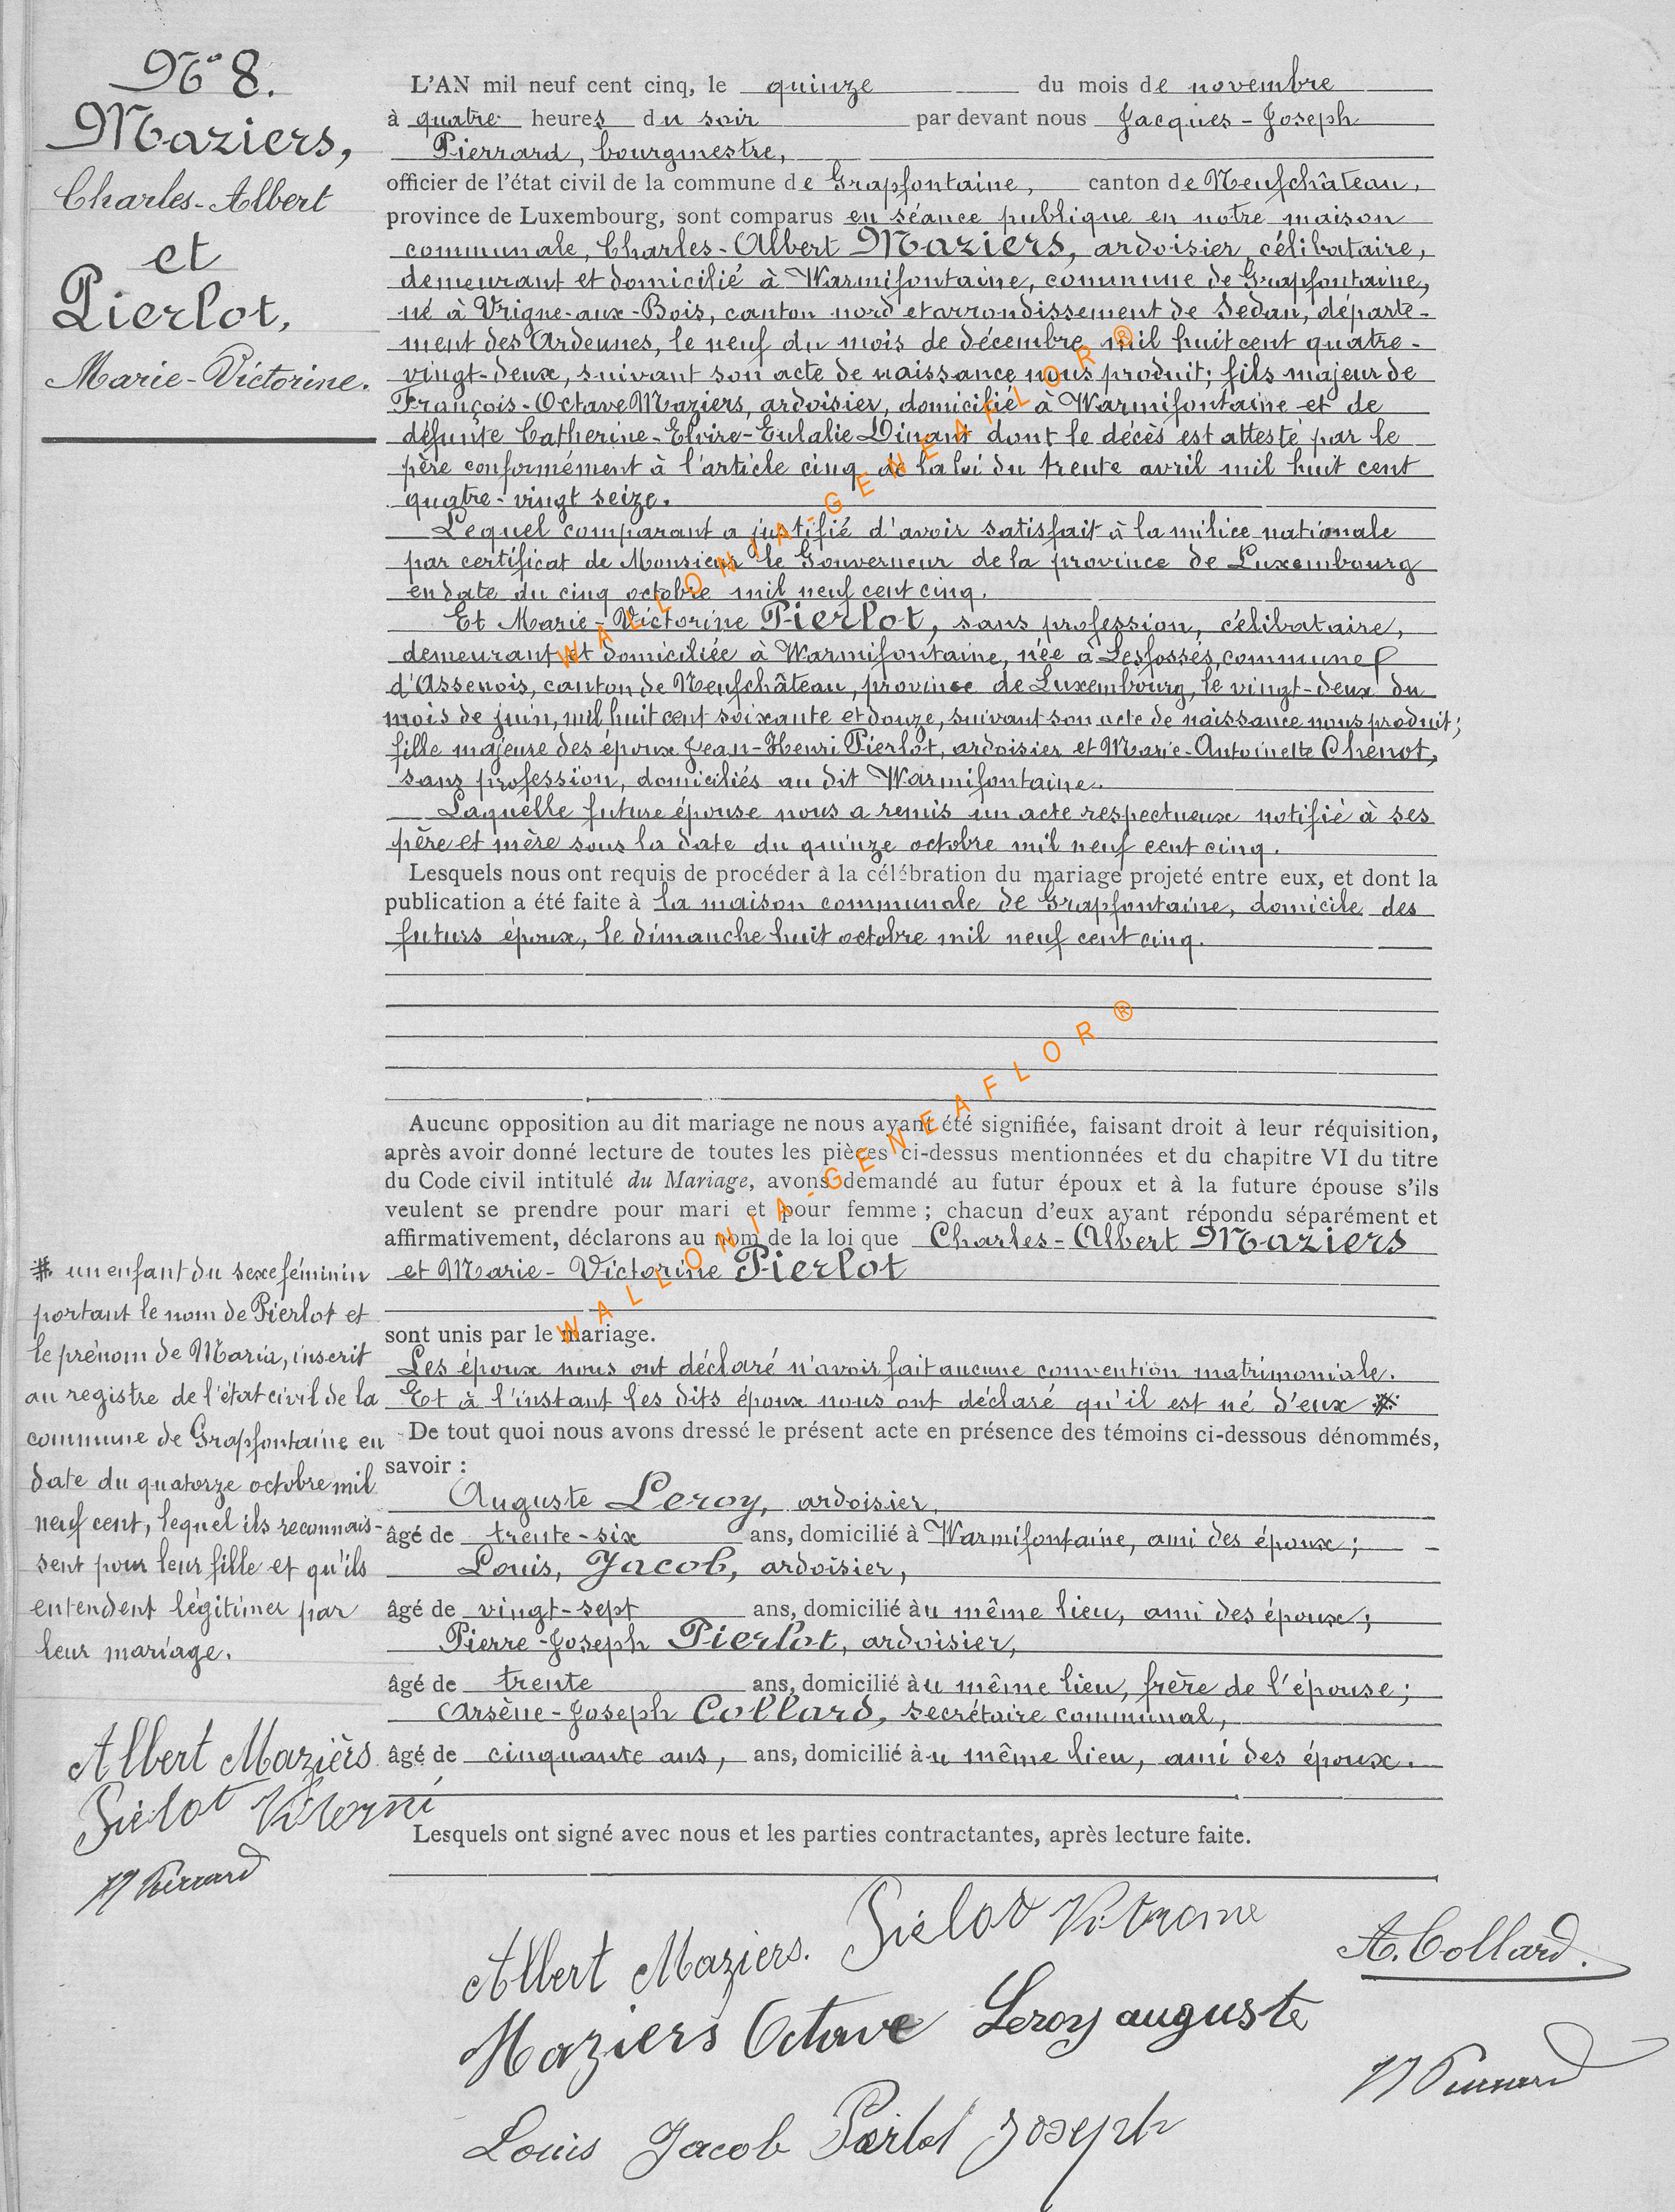 N° 8.
Maziers,
Charles-Albert
et
Pierlot,
Marie-Victorine.
L'AN mil neuf cent cinq, le quinze du mois de novembre
à quatre heures du soir par devant nous Jacques-Joseph
Pierrard, bourgmestre,
officier de l'état civil de la commune de Grapfontaine, canton de Neufchâteau,
province de Luxembourg, sont comparus en séance publique en notre maison
communale, Charles-Albert Maziers, ardoisier, célibataire,
demeurant et domicilié à Warmifontaine, commune de Grapfontaine,
né à Vrigne-aux-Bois, canton nord et arrondissement de Sedan, départe-
ment des Ardennes, le neuf du mois de décembre mil huit cent quatre-
vingt-deux, suivant son acte de naissance nous produit; fils majeur de
François-Octave Maziers, ardoisier, domicilié à Warmifontaine et de
défunte Catherine-Elvire-Eulalie Dinant dont le décès est attesté par le
père conformément à l'article cinq de la loi du trente avril mil huit cent
quatre-vingt seize.
Lequel comparant a justifié d'avoir satisfait à la milice nationale
par certificat de Monsieur le Gouverneur de la province de Luxembourg
en date du cinq octobre mil neuf cent cinq.
Et Marie-Victorine Pierlot, sans profession, célibataire,
demeurant et domiciliée à Warmifontaine, née à Lesfossés, commune
d'Assenois, canton de Neufchâteau, province de Luxembourg, le vingt-deux du
mois de juin, mil huit cent soixante et douze, suivant son acte de naissance nous produit;
fille majeure des époux Jean-Henri Pierlot, ardoisier et Marie-Antoinette Chenot,
sans profession, domiciliés au dit Warmifontaine.
Laquelle future épouse nous a remis un acte respectueux notifié à ses
père et mère sous la date du quinze octobre mil neuf cent cinq.
Lesquels nous ont requis de procéder à la célébration du mariage projeté entre eux, et dont la
publication a été faite à la maison communale de Grapfontaine, domicile des
futurs époux, le dimanche huit octobre mil neuf cent cinq.
WALLONIA-GENEAFLOR®
Aucune opposition au dit mariage ne nous ayant été signifiée, faisant droit à leur réquisition,
après avoir donné lecture de toutes les pièces ci-dessus mentionnées et du chapitre VI du titre
du Code civil intitulé du Mariage, avons demandé au futur époux et à la future épouse s'ils
veulent se prendre pour mari et pour femme ; chacun d'eux ayant répondu séparément et
affirmativement, déclarons au nom de la loi que Charles-Albert Maziers
et Marie-Victorine Pierlot
WALLONIA-GENEAFLOR®
sont unis par le mariage.
Les époux nous ont déclaré n'avoir fait aucune convention matrimoniale.
Et à l'instant les dits époux nous ont déclaré qu'il est né d'eux #
# un enfant du sexe féminin
portant le nom de Pierlot et
le prénom de Maria, inscrit
au registre de l'état civil de la
commune de Grapfontaine en
date du quatorze octobre mil
neuf cent, lequel ils reconnais-
sent pour leur fille et qu'ils
entendent légitimer par
leur mariage.
Albert Maziers
Pielot
Pierrard
De tout quoi nous avons dressé le présent acte en présence des témoins ci-dessous dénommés,
savoir :
Auguste Leroy, ardoisier,
âgé de trente-six ans, domicilié à Warmifontaine, ami des époux;
Louis, Jacob, ardoisier,
âgé de vingt-sept ans, domicilié au même lieu, ami des époux;
Pierre-Joseph Pierlot, ardoisier,
âgé de trente ans, domicilié au même lieu, frère de l'épouse;
Arsène-Joseph Collard, secrétaire communal,
âgé de cinquante ans, ans, domicilié au même lieu, ami des époux.
Lesquels ont signé avec nous et les parties contractantes, après lecture faite.
Albert Maziers. Pielot
A. Collard.
Maziers Octave Leroy auguste
Pierrard
Louis Jacob Joseph